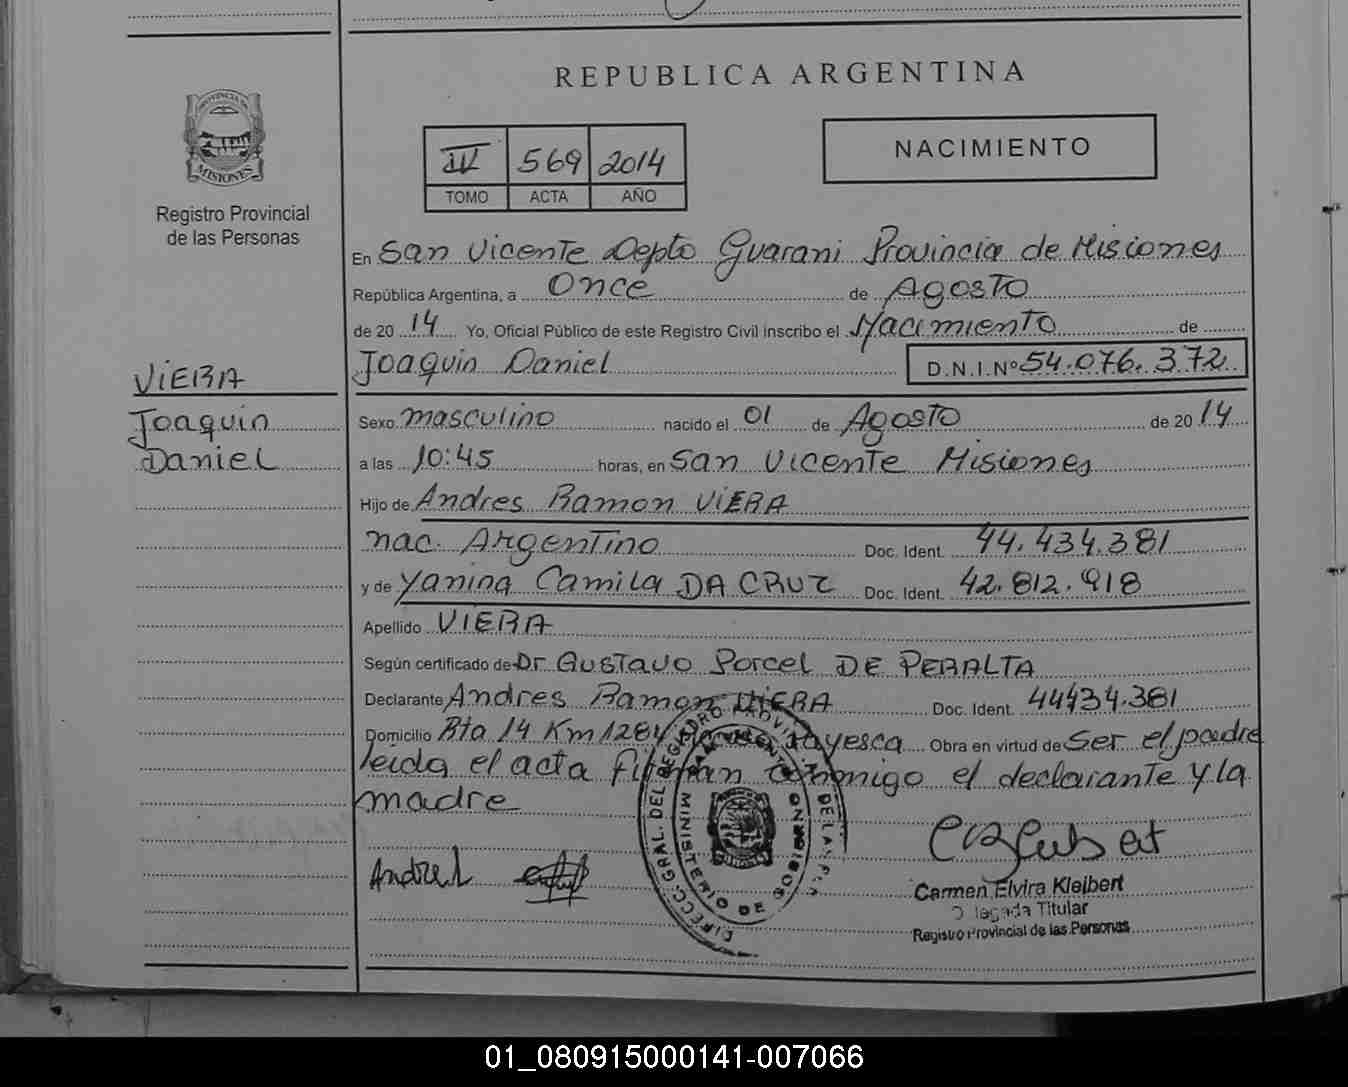 REPUBLICA ARGENTINA
PROVINCIA DE
MISIONES
Registro Provincial
de las Personas
IV 569 2014
TOMO ACTA AÑO
NACIMIENTO
En San Vicente Depto Guarani Provincia de Misiones
República Argentina, a Once de Agosto
de 2014 Yo, Oficial Público de este Registro Civil inscribo el Nacimiento de
Joaquin Daniel D.N.I.Nº 54.076.372
VIERA
Joaquin
Daniel
Sexo masculino nacido el 01 de Agosto de 2014
a las 10:45 horas, en San Vicente Misiones
Hijo de Andres Ramon VIERA
nac. Argentino Doc. Ident. 44.434.381
y de Yanina Camila DA CRUZ Doc. Ident. 42.812.918
Apellido VIERA
Según certificado de Dr Gustavo Porcel DE PERALTA
Declarante Andres Ramon VIERA Doc. Ident. 44434.381
Domicilio Rta 14 Km 1284 Obra en virtud de Ser el padre
leida el acta firman conmigo el declarante y la
madre
DIRECC. GRAL. DEL REGISTRO PROVINCIAL DE LAS
MINISTERIO DE GOBIERNO
Andrel
Carmen Elvira Kleibert
Delegada Titular
Registro Provincial de las Personas
01_080915000141-007066